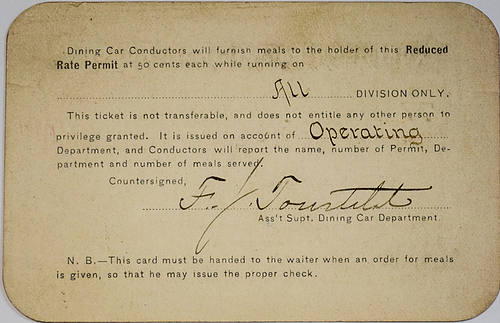 Dining Car Conductors will furnish meals to the holder of this Reduced
Rate Permit at 50 cents each while running on
All DIVISION ONLY.
This ticket is not transferable, and does not entitle any other person to
privilege granted. It is issued on account of Operating
Department, and Conductors will report the name, number of Permit, De-
partment and number of meals served.
Countersigned,
F. J. Tourtelot
Ass't Supt. Dining Car Department.
N. B.—This card must be handed to the waiter when an order for meals
is given, so that he may issue the proper check.